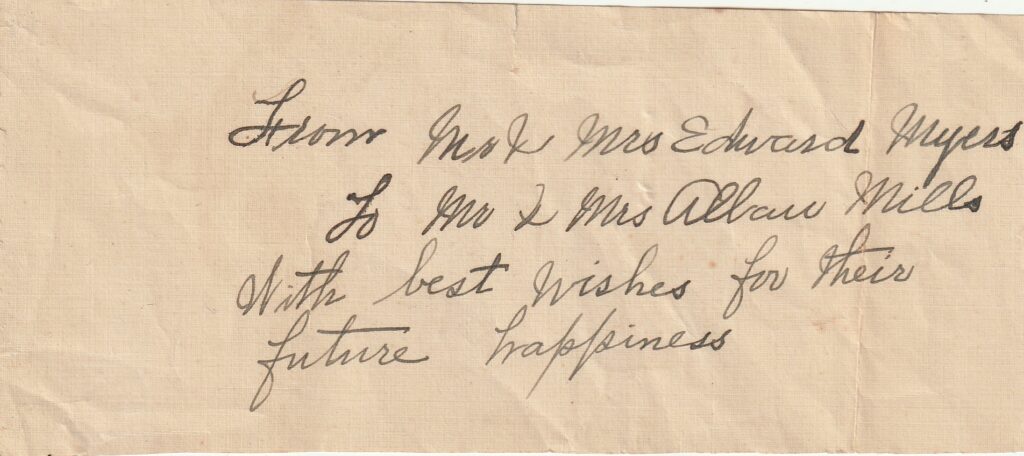 From Mr & Mrs Edward Myers
To Mr & Mrs Alban Mills
With best wishes for their
future happiness